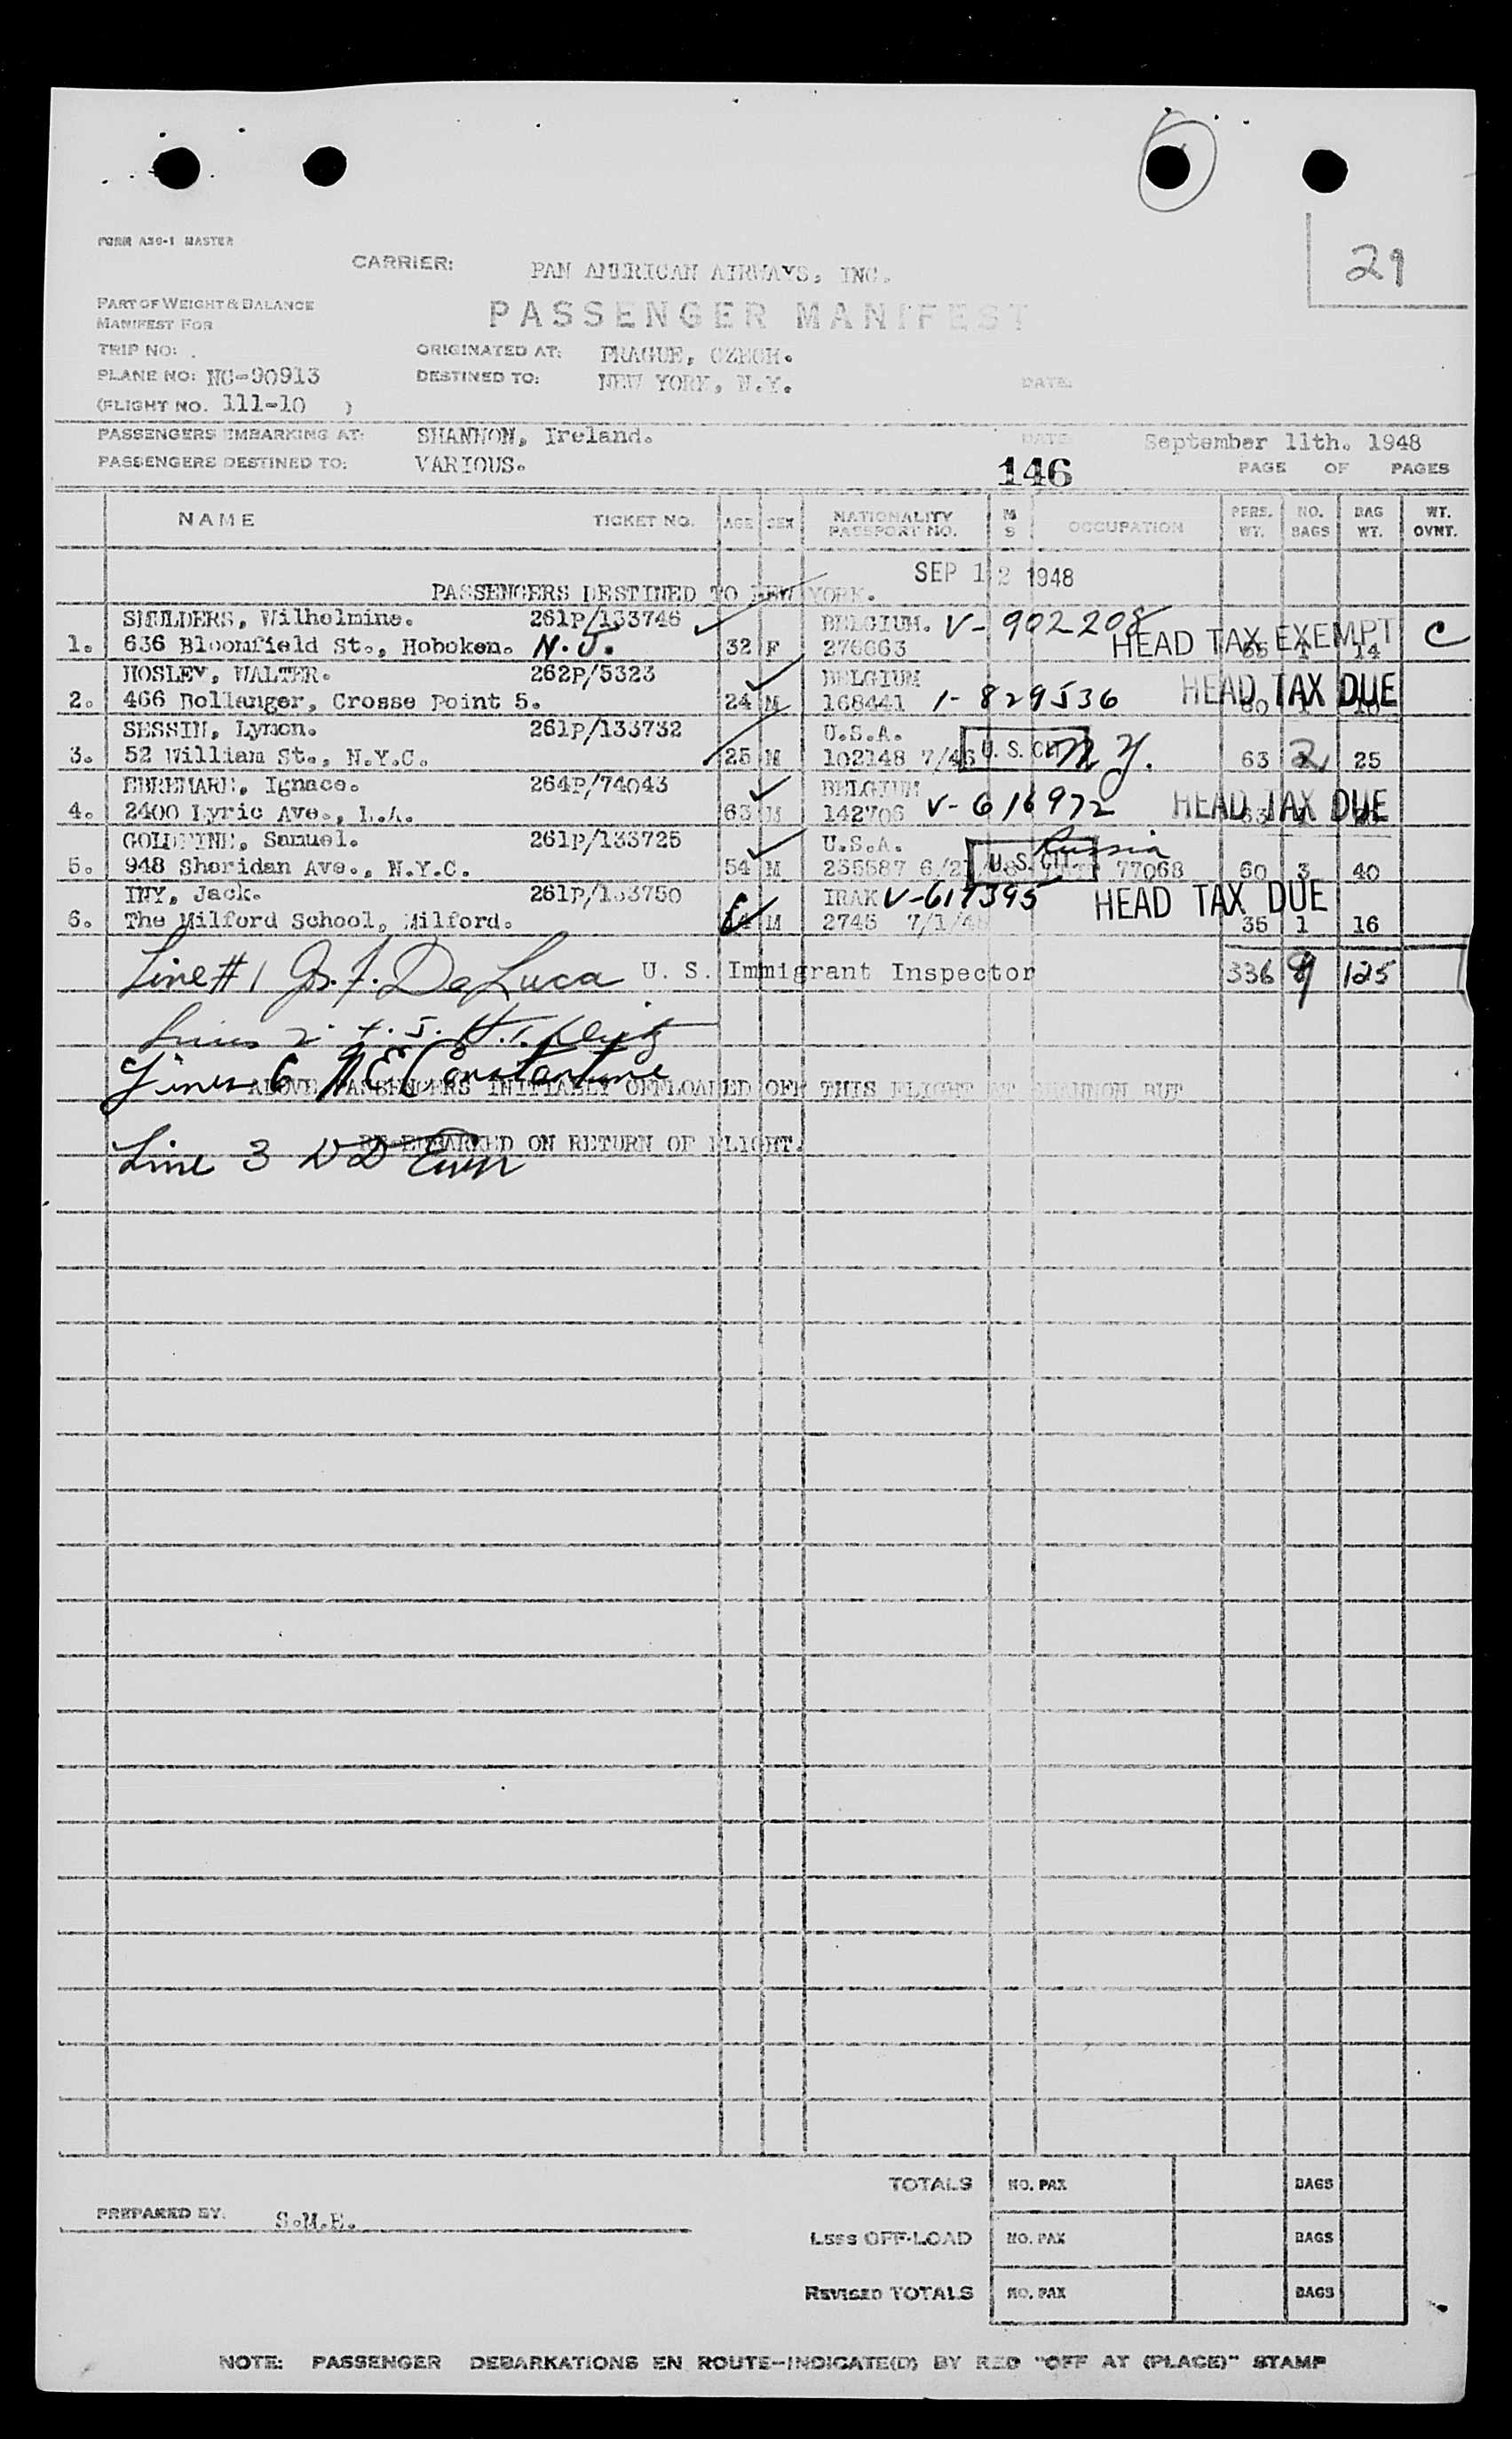 29
FORM ASC-1 MASTER
CARRIER: PAN AMERICAN AIRWAYS, INC.
PART OF WEIGHT & BALANCE
MANIFEST FOR
PASSENGER MANIFEST
TRIP NO:
ORIGINATED AT: PRAGUE, CZECH.
PLANE NO: NC-90913
DESTINED TO: NEW YORK, N.Y.
DATE:
(FLIGHT NO. 111-10 )
PASSENGERS EMBARKING AT: SHANNON, Ireland. DATE: September 11th. 1948
PASSENGERS DESTINED TO: VARIOUS. 146 PAGE OF PAGES
NAME TICKET NO. AGE SEX NATIONALITY PASSPORT NO. M S OCCUPATION PERS. WT. NO. BAGS BAG WT. WT. OVNT.
SEP 12 1948
PASSENGERS DESTINED TO NEW YORK.
SMULDERS, Wilhelmine. 261P/133746 BELGIUM. V-902208
1. 636 Bloomfield St., Hoboken. N.J. 32 F 276663 HEAD TAX EXEMPT 1 14 C
HOSLEY, WALTER. 262P/5323 BELGIUM
2. 466 Bollanger, Crosse Point 5. 24 M 168441 1-829536 HEAD TAX DUE
SESSIN, Lymon. 261P/133732 U.S.A.
3. 52 William St., N.Y.C. 25 M 102148 7/46 U.S. CIT. N.Y. 63 2 25
Ignace. 264P/74043 BELGIUM
4. 2400 Lyric Ave., L.A. 63 M 142706 V-616972 HEAD TAX DUE
GOLDFINE, Samuel. 261P/133725 U.S.A. Russia
5. 948 Sheridan Ave., N.Y.C. 54 M 235587 U.S. CIT. 77068 60 3 40
INY, Jack. 261P/133750 IRAK V-617395 HEAD TAX DUE
6. The Milford School, Milford. M 2745 7/1/48 35 1 16
Line #1 Jos. F. DeLuca U. S. Immigrant Inspector 336 9 125
Lines 2. 4. 5.
Lines 6 N E Constantine
ABOVE PASSENGERS INITIALLY OFFLOADED OFF THIS FLIGHT AT SHANNON BUT
RE-EMBARKED ON RETURN OF FLIGHT.
Line 3
TOTALS NO. PAX BAGS
PREPARED BY: S.M.E.
LESS OFF-LOAD NO. PAX BAGS
REVISED TOTALS NO. PAX BAGS
NOTE: PASSENGER DEBARKATIONS EN ROUTE-INDICATE(D) BY RED "OFF AT (PLACE)" STAMP